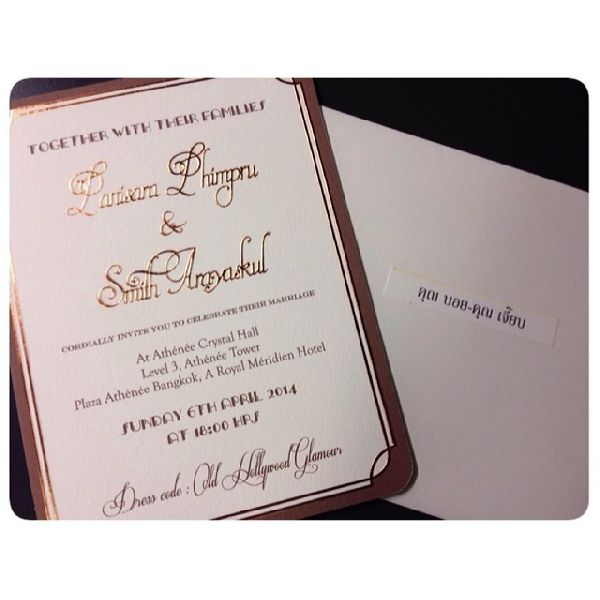 TOGETHER WITH THEIR FAMILIES
Panisara Phimpru
&
Smith Arayaskul
CORDIALLY INVITE YOU TO CELEBRATE THEIR MARRIAGE
At Athénée Crystal Hall
Level 3, Athénée Tower
Plaza Athénée Bangkok, A Royal Méridien Hotel
SUNDAY 6TH APRIL 2014
AT 18:00 HRS
Dress code : Old Hollywood Glamour
คุณ บอย-คุณ เจี๊ยบ